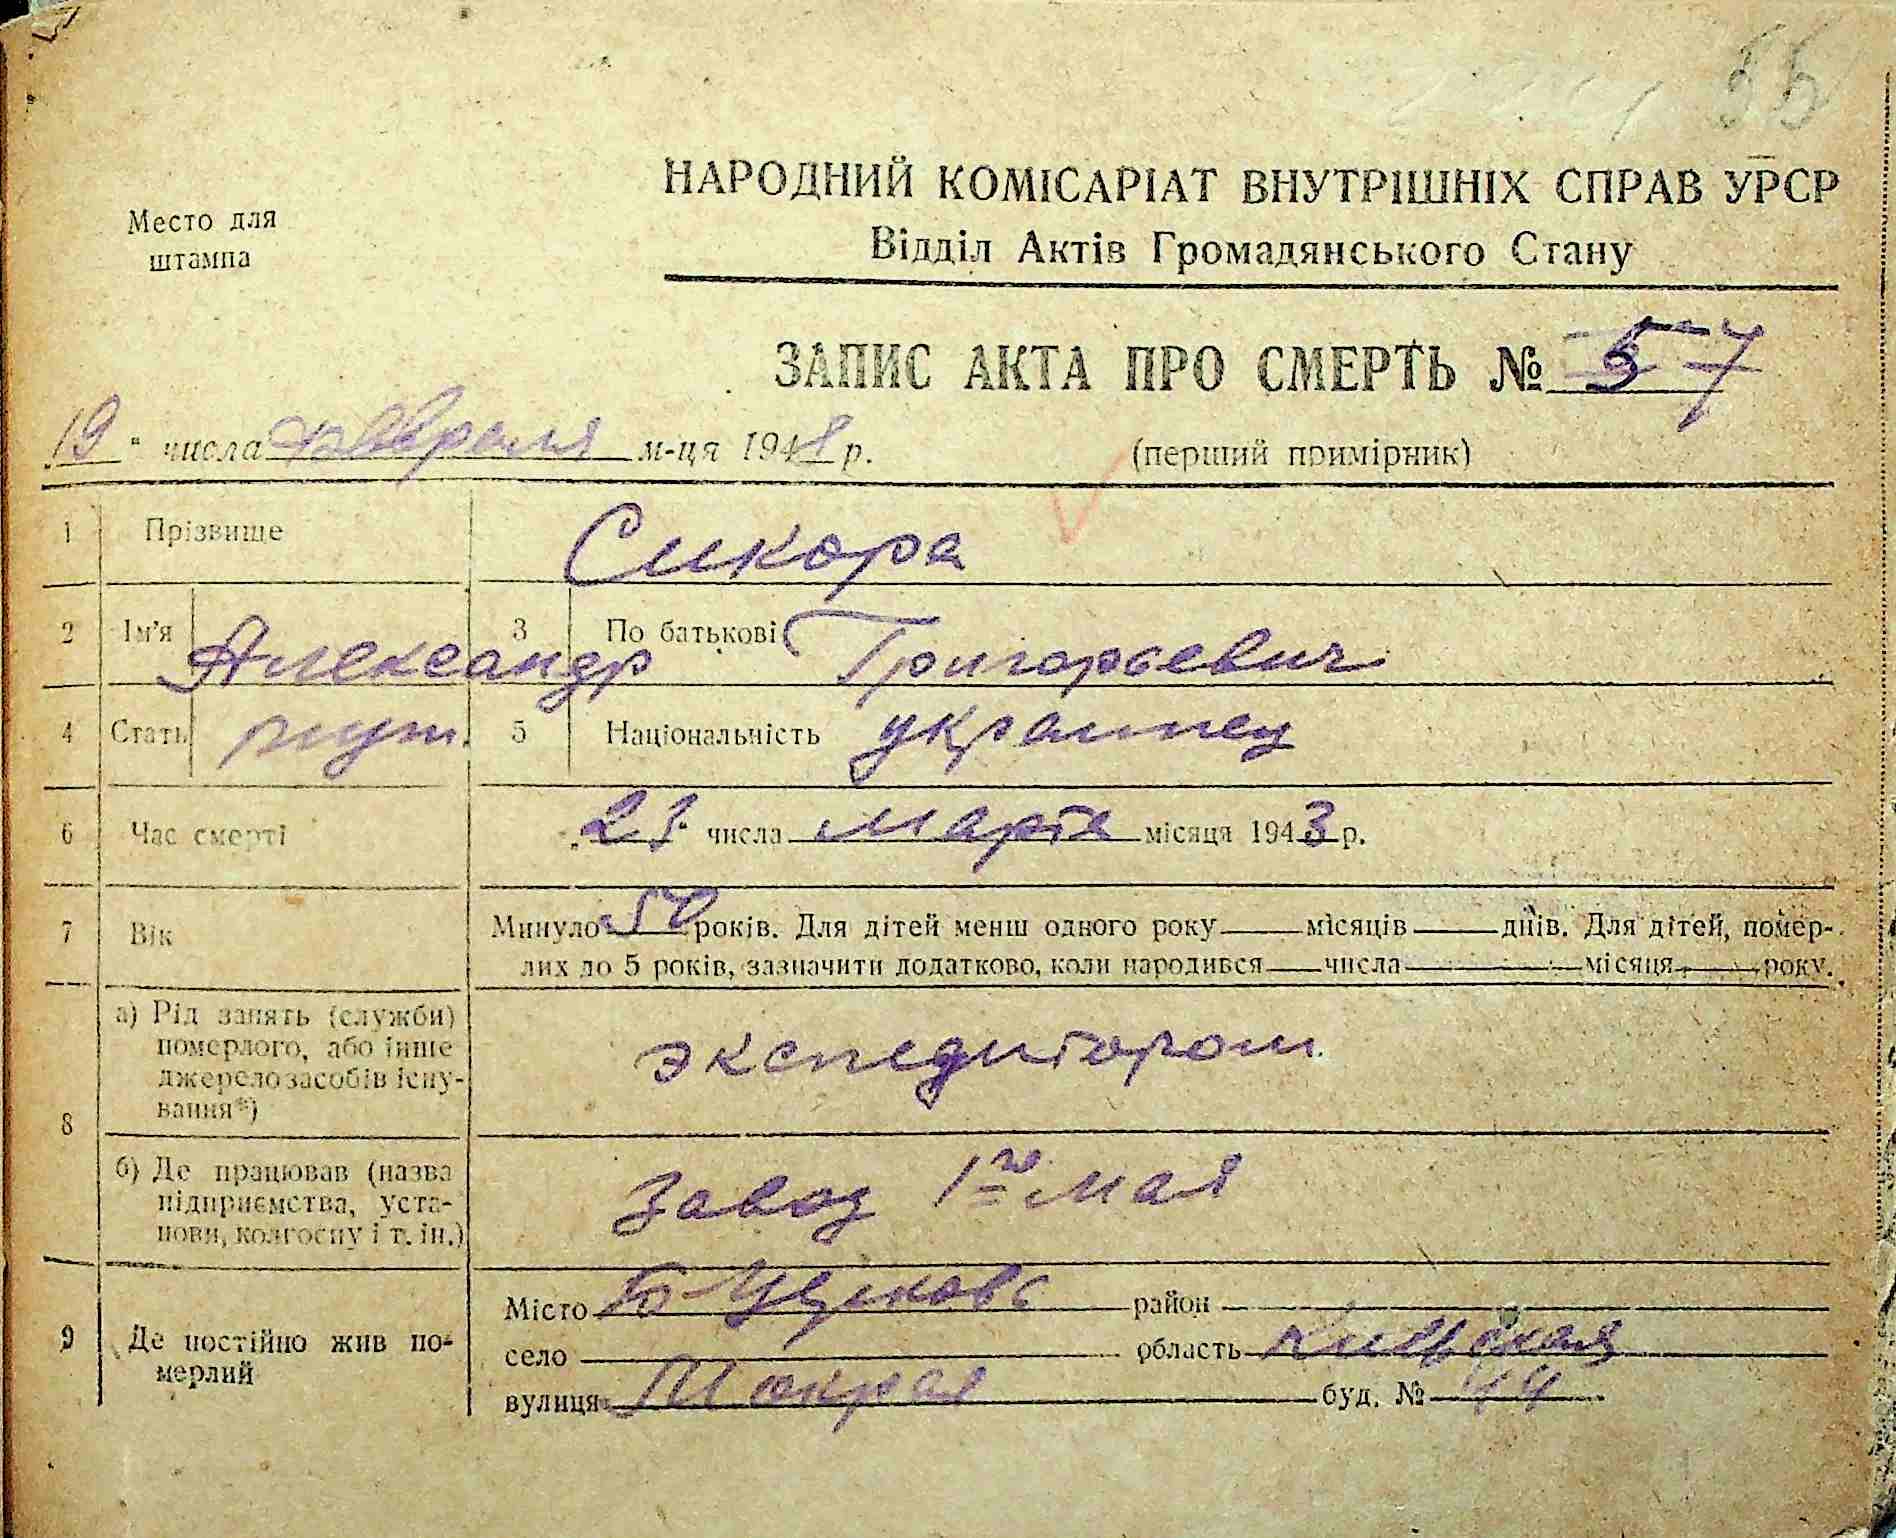 55
НАРОДНИЙ КОМІСАРІАТ ВНУТРІШНІХ СПРАВ УРСР
Место для
штампа
Відділ Актів Громадянського Стану
ЗАПИС АКТА ПРО СМЕРТЬ № 57
19 " числа февраля м-ця 1948 р.
(перший примірник)
1 Прізвище Сикора
2 Ім'я Александр 3 По батькові Григорьевич
4 Стать муж. 5 Національність украинец
6 Час смерті „23" числа марта місяця 1943 р.
7 Вік Минуло 50 років. Для дітей менш одного року місяців днів. Для дітей, помер-
лих до 5 років, зазначити додатково, коли народився числа місяця року.
8 а) Рід занять (служби)
померлого, або інше
джерело засобів існу-
вання*)
экспедитором
б) Де працював (назва
підприємства, уста-
нови, колгоспу і т. ін.)
Завод 1го мая
9 Де постійно жив по-
мерлий
Місто Б Церковь район
село область Киевская
вулиця Мокрая буд. № 44